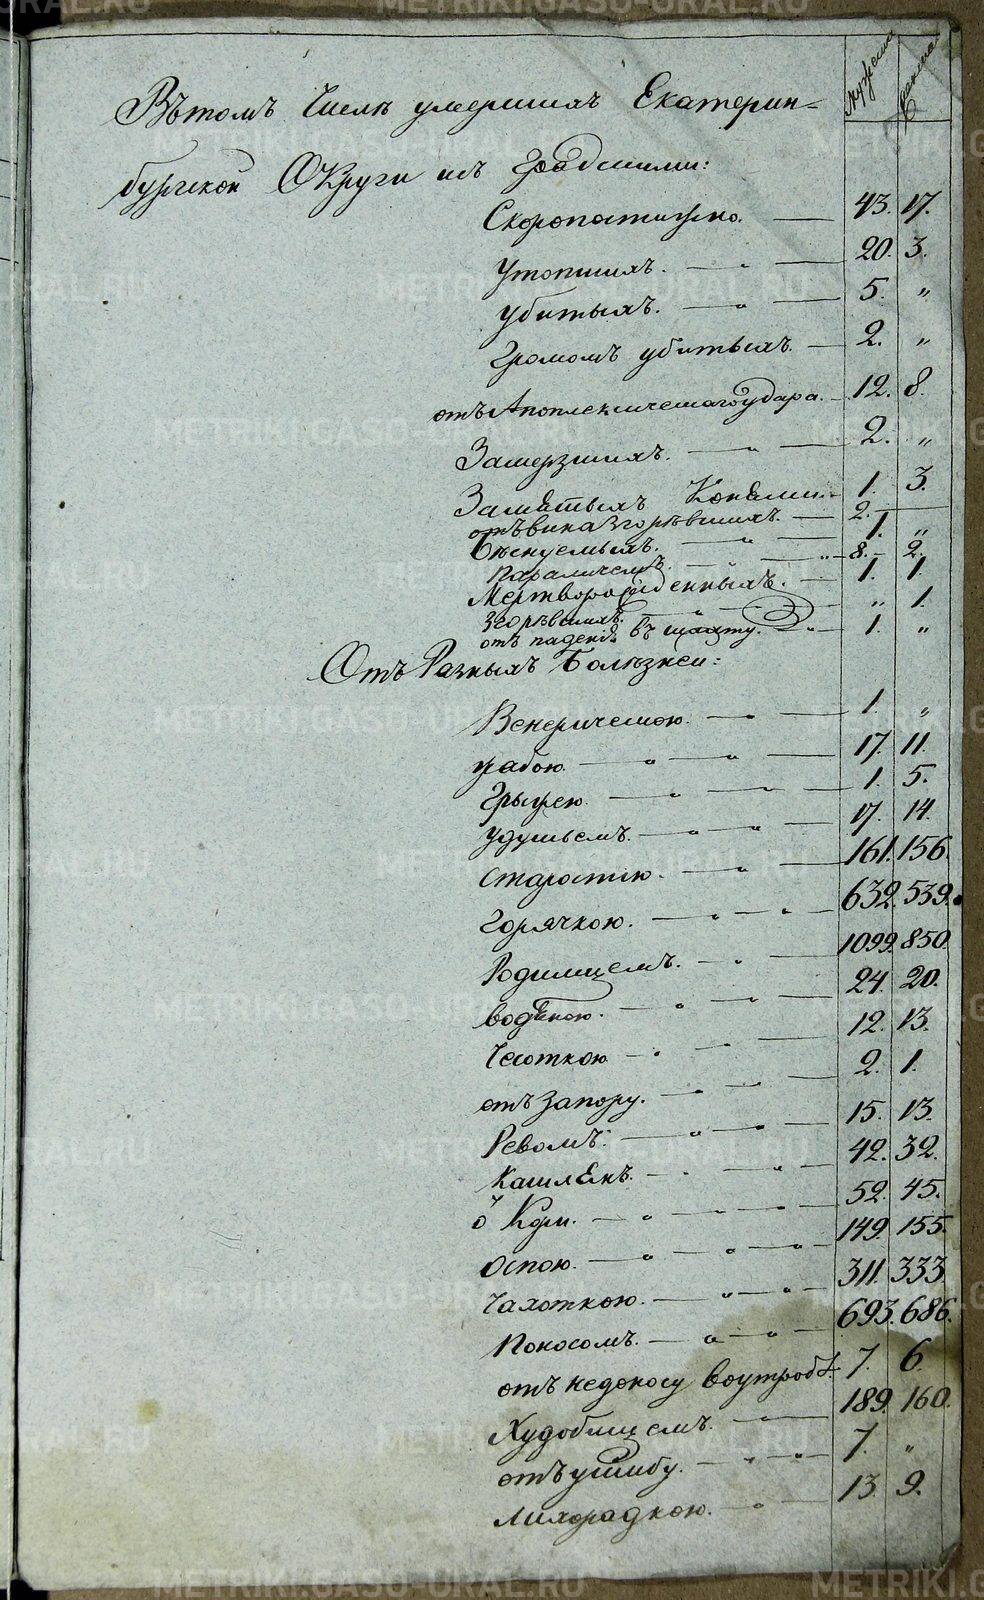 мужеска женска
Вътомъ Числѣ умершихъ Екатерин=
бургской Округи изъ Градскими:
Скоропостижно. 43. 17.
Утопшихъ. 20. 3.
убитыхъ. 5. "
Громомъ убитыхъ. 2. "
отъ Апоплексическаго удара. 12. 8.
Замерзшихъ. 2. "
Замятыхъ Конями. 1. 3.
отъ вина згорѣвшихъ. 2.
Бѣснуемыхъ. 1. "
Параличемъ. 8. 2.
Мертворожденныхъ. 1. 1.
Згорѣвшихъ. " 1.
отъ падения въ шахту. 1. "
Отъ Разныхъ Болѣзней:
Венерическою. 1. "
жабою. 17. 11.
Грыжею. 1. 5.
удушьемъ. 17. 14.
старостию. 161. 156.
Горячкою. 632. 539.
Родимцемъ. 1099. 850.
водяною. 24. 20.
Чесоткою 12. 13.
отъ Запору. 2. 1.
Ревомъ. 15. 13.
Кашлемъ. 42. 32.
52. 45.
Оспою. 149. 155.
Чахоткою. 311. 333.
Поносомъ. 693. 686.
отъ недоносу воутробѣ. 7. 6.
Худобищемъ. 189. 160.
отъ ушибу. 7. "
лихорадкою. 13. 9.
METRIKI.GASO-URAL.RU